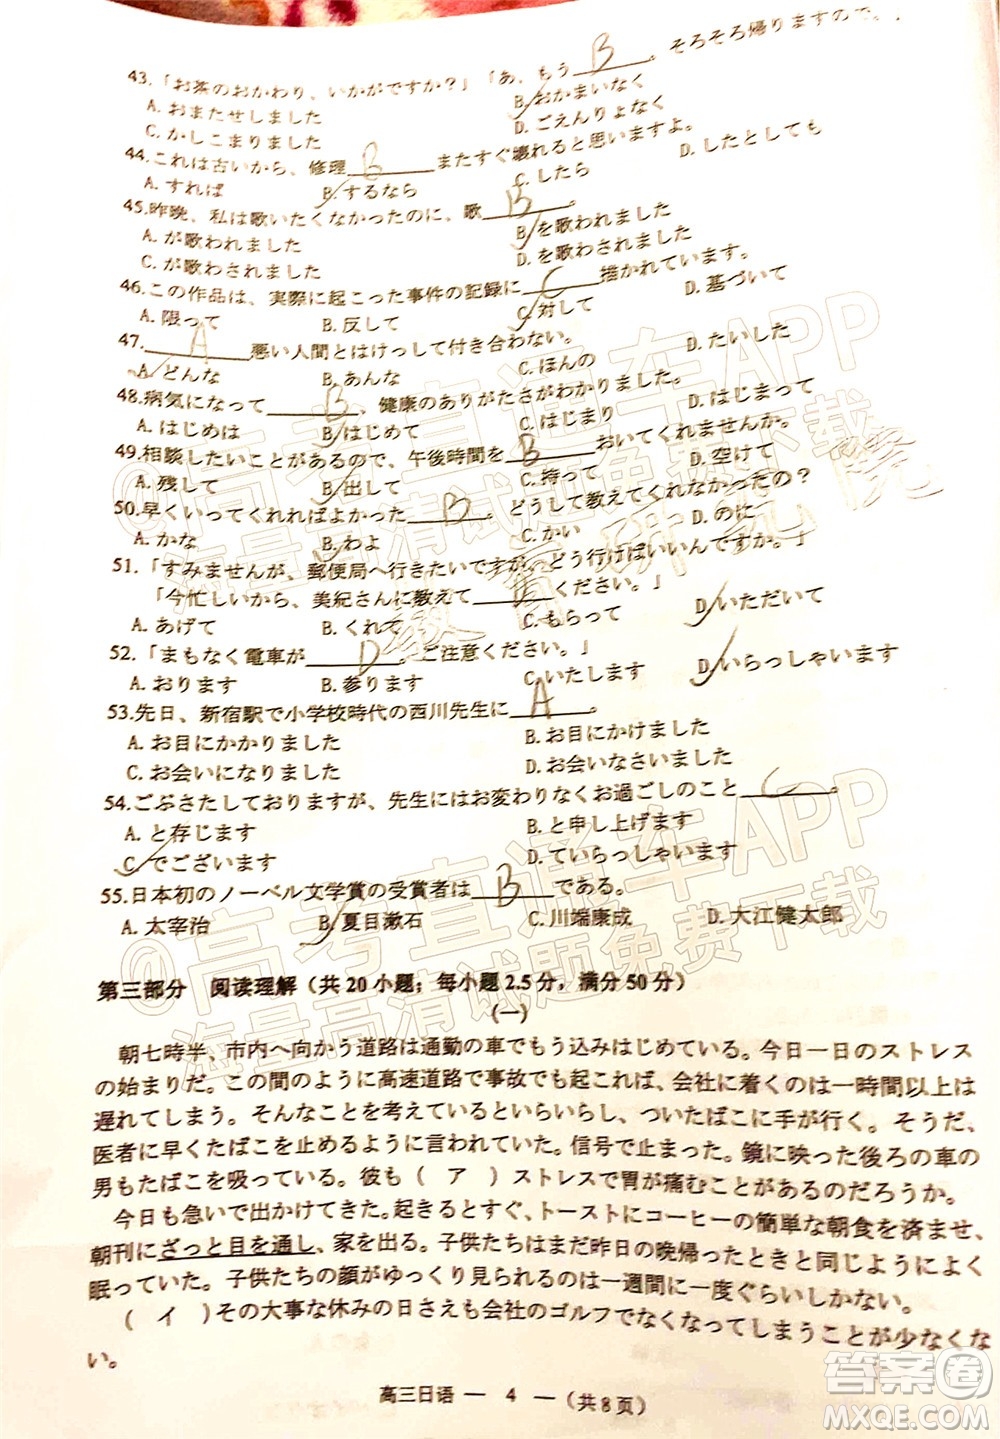 43.「お茶のおかわり、いかがですか？」「あ、もう B 。そろそろ帰りますので。」
A. おまたせしました B. おかまいなく
C. かしこまりました D. ごえんりょなく
44.これは古いから、修理 B またすぐ壊れると思いますよ。
A. すれば B. するなら C. したら D. したとしても
45.昨晩、私は歌いたくなかったのに、歌 B 。
A. が歌われました B. を歌われました
C. が歌わされました D. を歌わされました
46.この作品は、実際に起こった事件の記録に C 描かれています。
A. 限って B. 反して C. 対して D. 基づいて
47. A 悪い人間とはけっして付き合わない。
A. どんな B. あんな C. ほんの D. たいした
48.病気になって B 、健康のありがたさがわかりました。
A. はじめは B. はじめて C. はじまり D. はじまって
49.相談したいことがあるので、午後時間を B おいてくれませんか。
A. 残して B. 出して C. 持って D. 空けて
50.早くいってくれればよかった B 。どうして教えてくれなかったの？
A. かな B. わよ C. かい D. のに
51.「すみませんが、郵便局へ行きたいですが、どう行けばいいんですか。」
「今忙しいから、美紀さんに教えて D ください。」
A. あげて B. くれて C. もらって D. いただいて
52.「まもなく電車が D 。ご注意ください。」
A. おります B. 参ります C. いたします D. いらっしゃいます
53.先日、新宿駅で小学校時代の西川先生に A 。
A. お目にかかりました B. お目にかけました
C. お会いになりました D. お会いなさいました
54.ごぶさたしておりますが、先生にはお変わりなくお過ごしのこと C 。
A. と存じます B. と申し上げます
C. でございます D. ていらっしゃいます
55.日本初のノーベル文学賞の受賞者は B である。
A. 太宰治 B. 夏目漱石 C. 川端康成 D. 大江健太郎
第三部分 阅读理解（共20小题；每小题2.5分，满分50分）
(一)
朝七時半、市内へ向かう道路は通勤の車でもう込みはじめている。今日一日のストレス
の始まりだ。この間のように高速道路で事故でも起これば、会社に着くのは一時間以上は
遅れてしまう。そんなことを考えているといらいらし、ついたばこに手が行く。そうだ、
医者に早くたばこを止めるように言われていた。信号で止まった。鏡に映った後ろの車の
男もたばこを吸っている。彼も（ ア ）ストレスで胃が痛むことがあるのだろうか。
今日も急いで出かけてきた。起きるとすぐ、トーストにコーヒーの簡単な朝食を済ませ、
朝刊にざっと目を通し、家を出る。子供たちはまだ昨日の晩帰ったときと同じようによく
眠っていた。子供たちの顔がゆっくり見られるのは一週間に一度ぐらいしかない。
（ イ ）その大事な休みの日さえも会社のゴルフでなくなってしまうことが少なくな
い。
高三日语 — 4 —（共8页）
@高考直通车APP
海量高清试题免费下载
教育研究院
@高考直通车APP
海量高清试题免费下载
答案圈
MXQE.COM